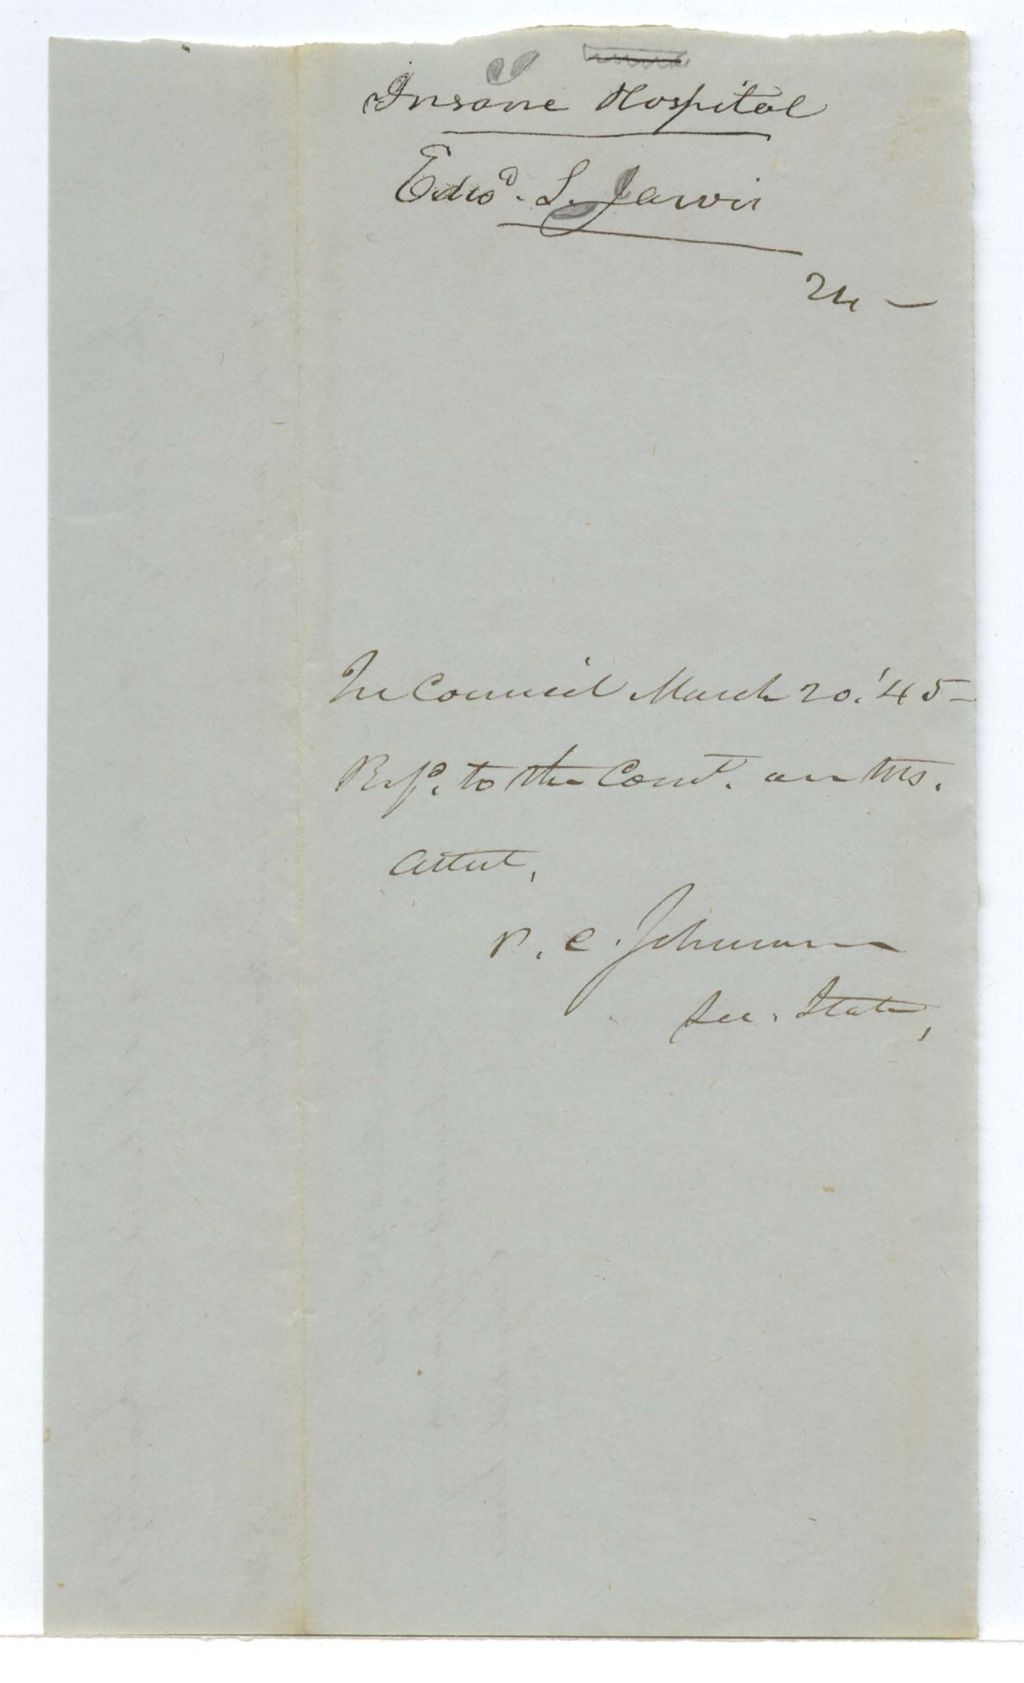 Insane Hospital
Edwd. S. Jarvis
24 —
In Council March 20. '45 -
Refd. to the Comt. on
Attest,
P. C. Johnson
Sec. State,